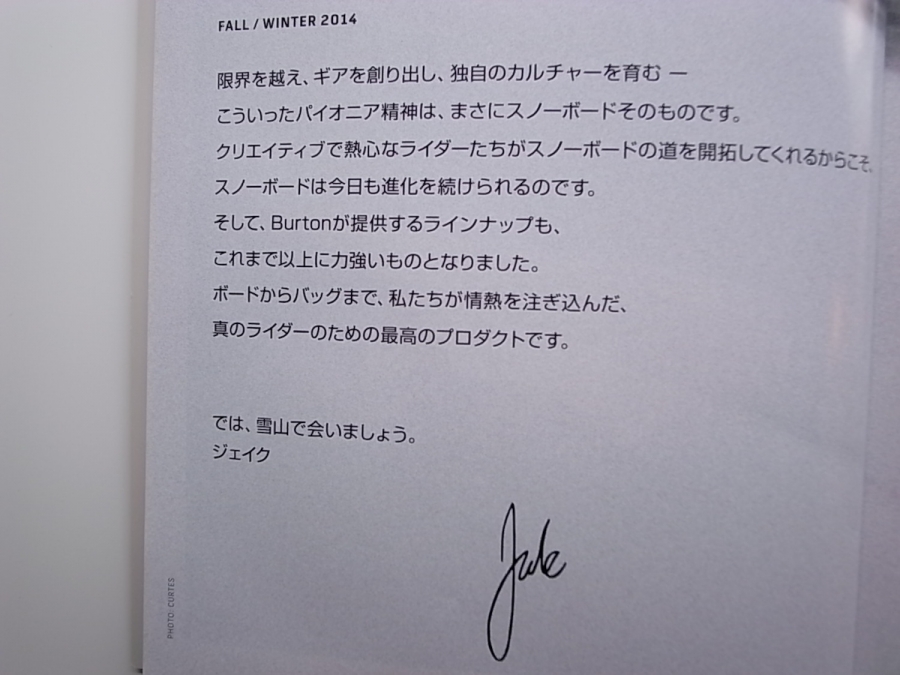 FALL / WINTER 2014
限界を越え、ギアを創り出し、独自のカルチャーを育む ー
こういったパイオニア精神は、まさにスノーボードそのものです。
クリエイティブで熱心なライダーたちがスノーボードの道を開拓してくれるからこそ、
スノーボードは今日も進化を続けられるのです。
そして、Burtonが提供するラインナップも、
これまで以上に力強いものとなりました。
ボードからバッグまで、私たちが情熱を注ぎ込んだ、
真のライダーのための最高のプロダクトです。
では、雪山で会いましょう。
ジェイク
Jake
PHOTO: CURTES